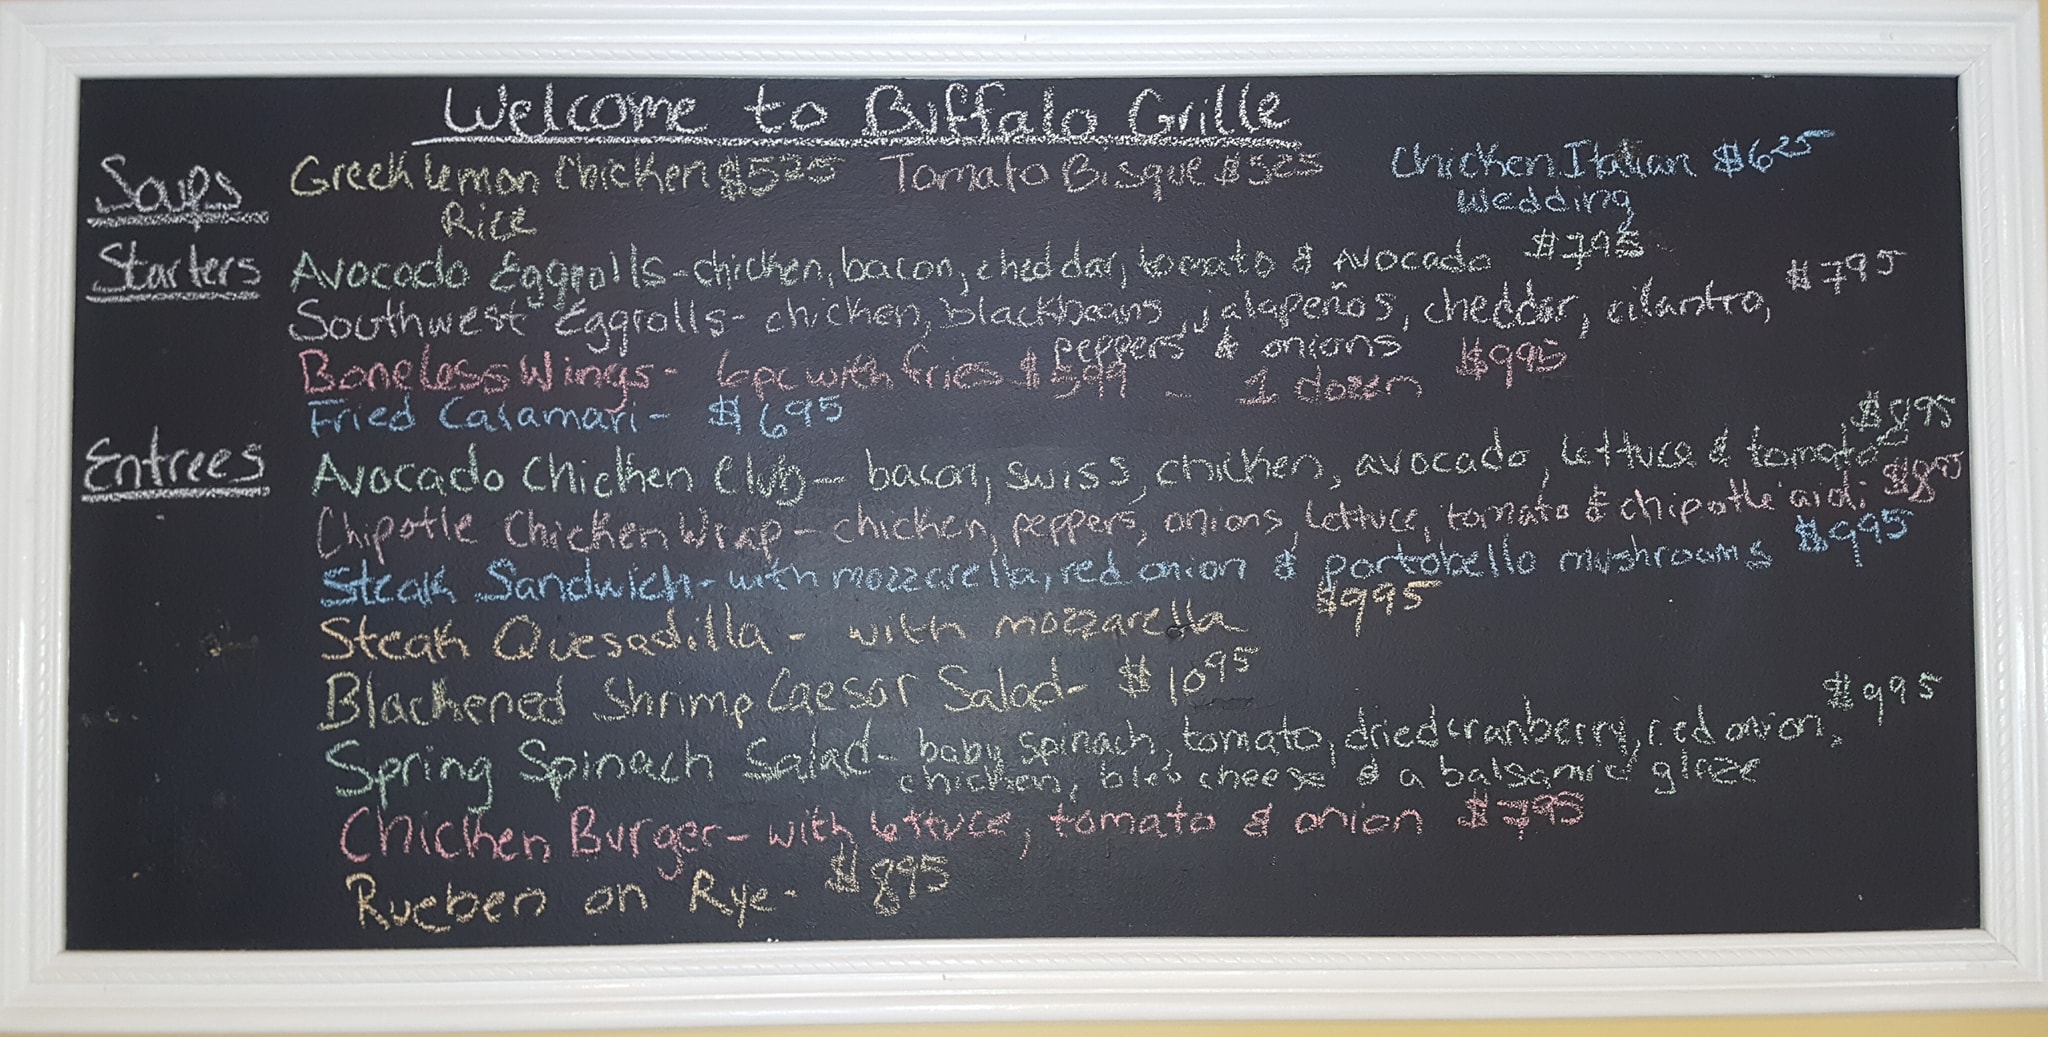 Welcome to Buffalo Grille
Soups Greek Lemon Chicken $525 Tomato Bisque $525 Chicken Italian $625
Rice Wedding
Starters Avocado Eggrolls - chicken, bacon, cheddar, tomato & Avocado $795
Southwest Eggrolls - chicken, blackbeans, jalapeños, cheddar, cilantro, $795
peppers & onions
Boneless Wings - 6pc with fries $599 - 1 dozen $995
Fried Calamari - $695
Entrees Avocado Chicken Club - bacon, swiss, chicken, avocado, lettuce & tomato $895
Chipotle Chicken Wrap - chicken, peppers, onions, lettuce, tomato & chipotle aioli $895
Steak Sandwich - with mozzarella, red onion & portobello mushrooms $995
Steak Quesadilla - with mozzarella $995
Blackened Shrimp Caesar Salad - $1095
Spring Spinach Salad - baby spinach, tomato, dried cranberry, red onion, $995
chicken, bleu cheese & a balsamic glaze
Chicken Burger - with lettuce, tomato & onion $795
Rueben on Rye - $895